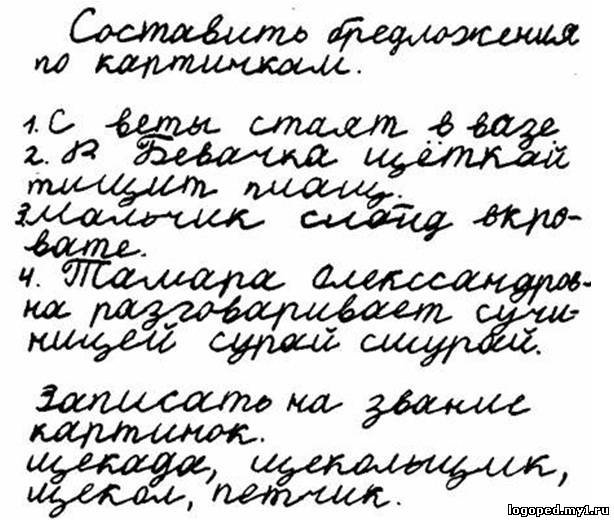 Составить бредложения
по картичкам.
1. С веты стаят в вазе
2. Бевачка щёткай
тищит плащ.
3. Мальчик слопд окро-
вате.
4. Тамара Олекссандров-
на разговаривает сучи-
ницей сурай сшурай.
Записать на звание
картинок.
щекада, щекольщик,
щекол, петчик.
logoped.my1.ru